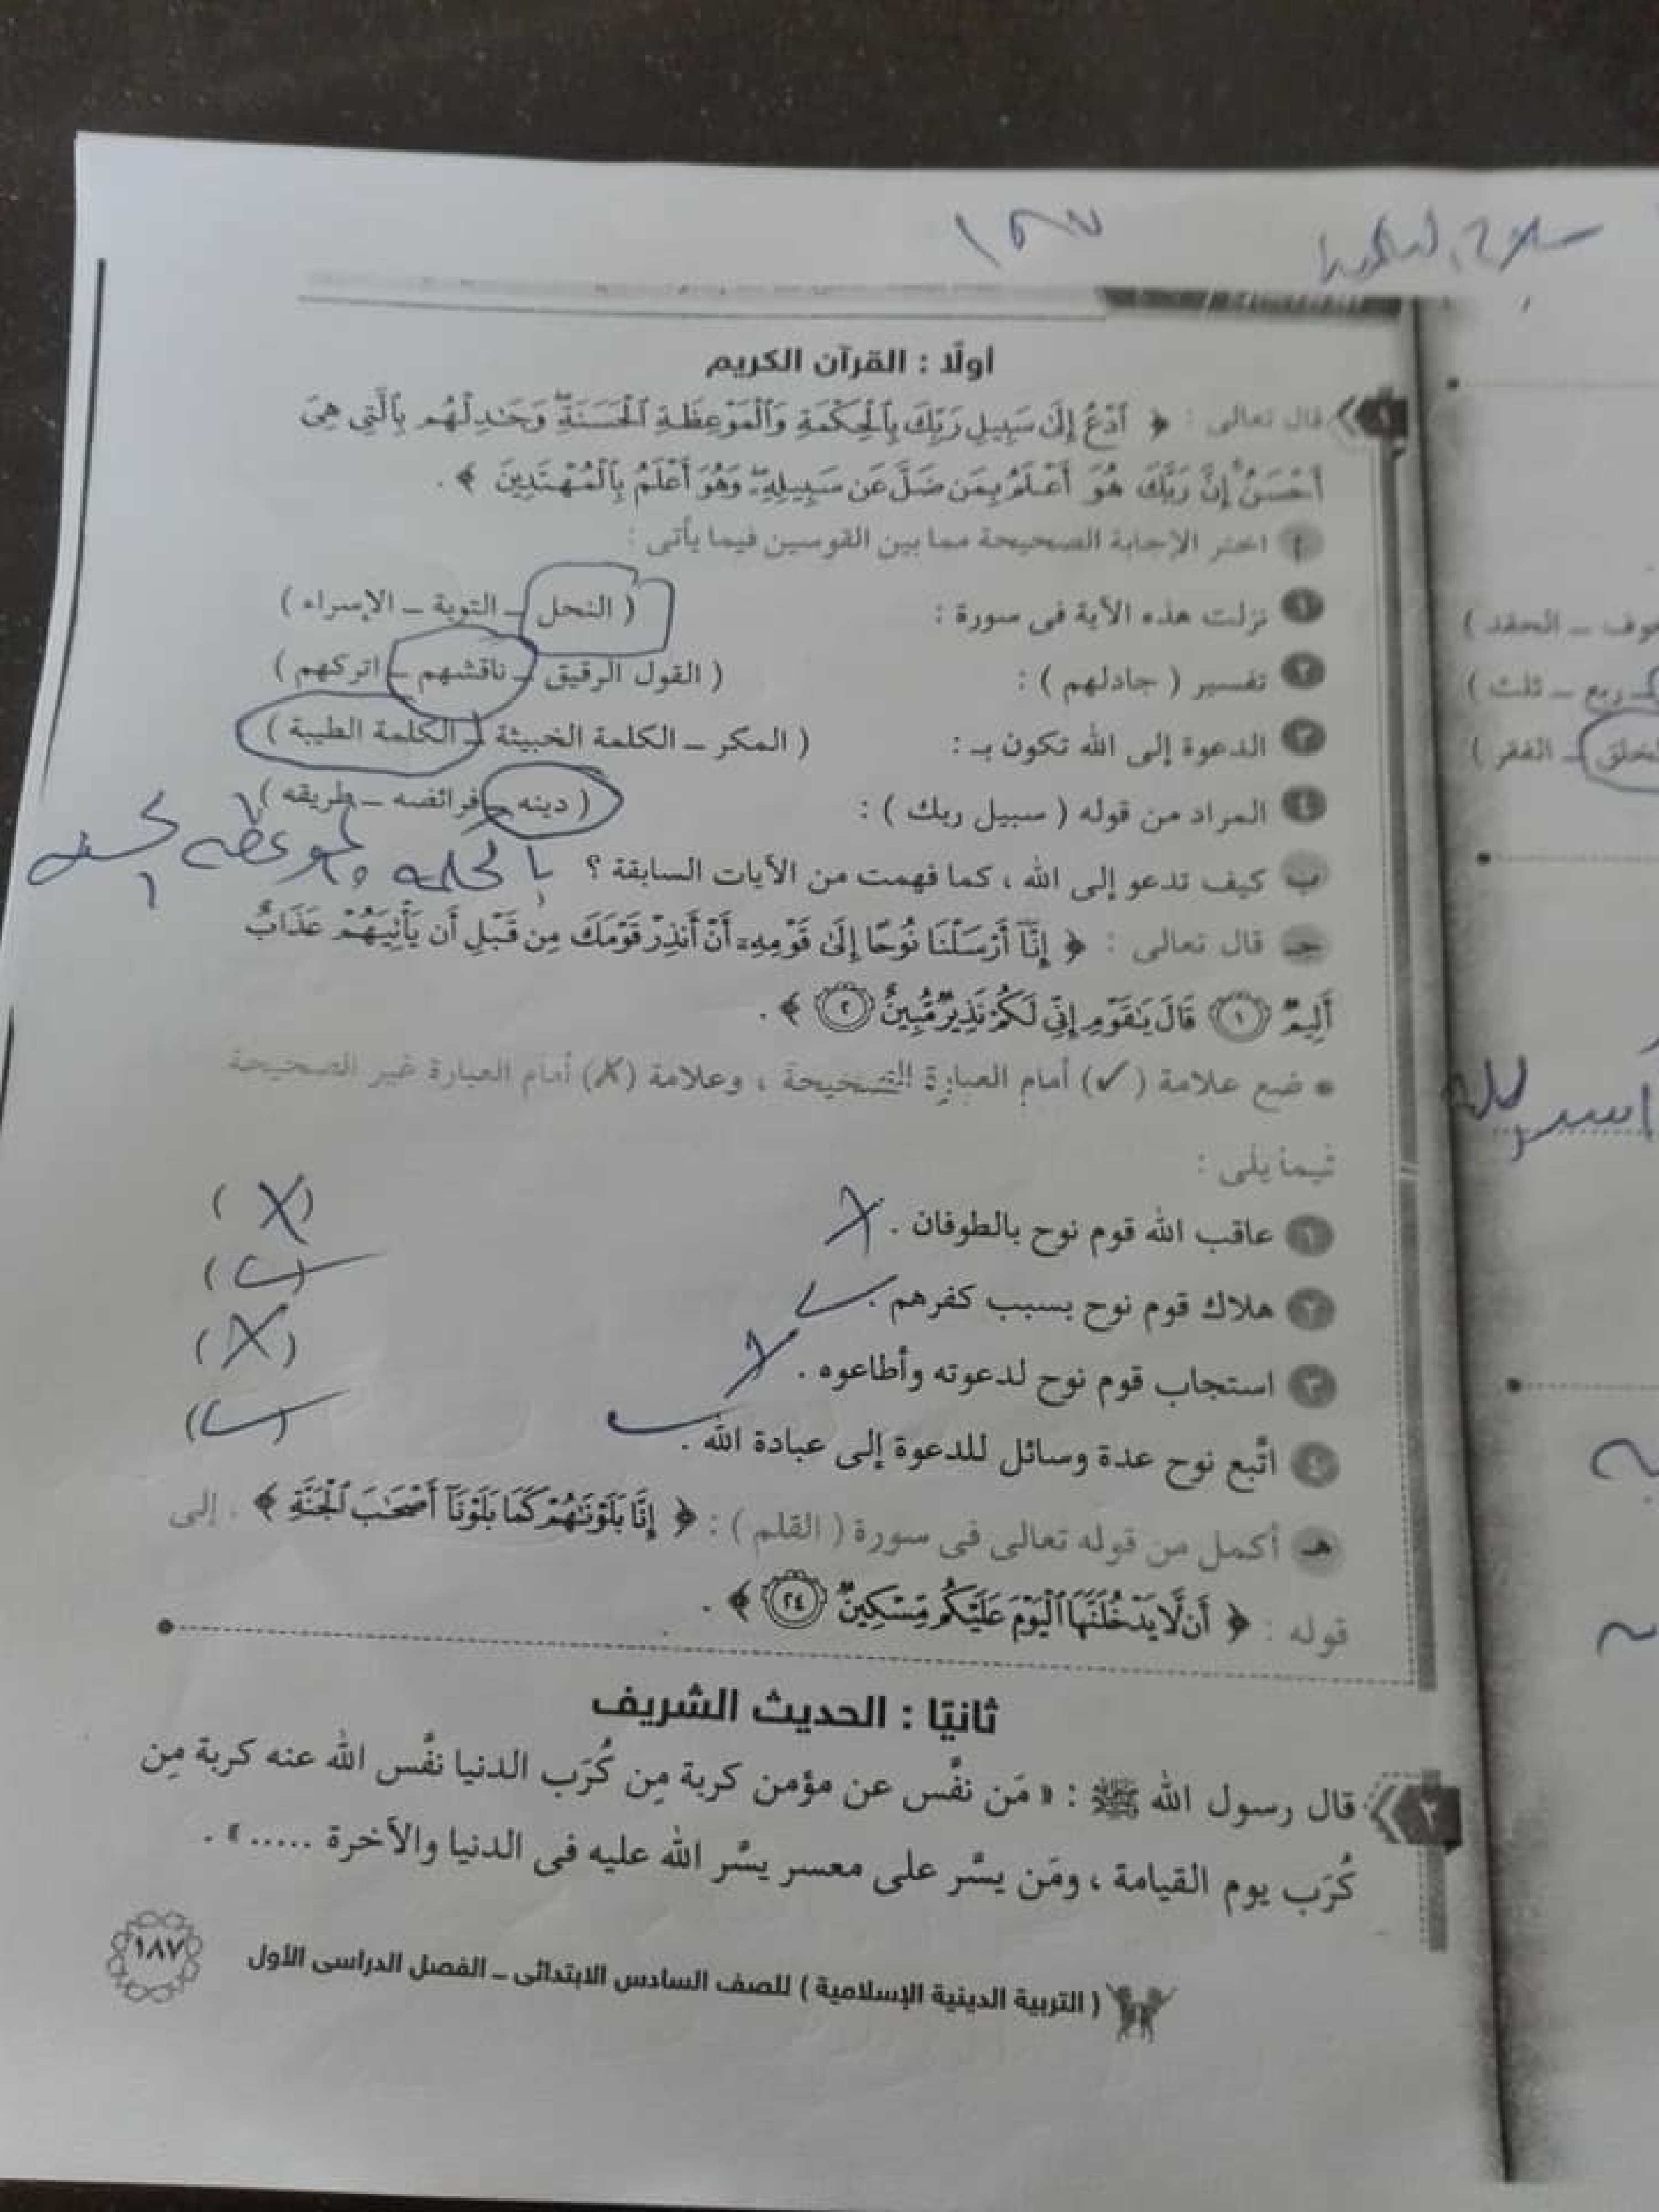 ١٨٧
أولًا : القرآن الكريم
١ قال تعالى : ﴿ ٱدْعُ إِلَىٰ سَبِيلِ رَبِّكَ بِٱلْحِكْمَةِ وَٱلْمَوْعِظَةِ ٱلْحَسَنَةِۖ وَجَٰدِلْهُم بِٱلَّتِي هِيَ
أَحْسَنُۚ إِنَّ رَبَّكَ هُوَ أَعْلَمُ بِمَن ضَلَّ عَن سَبِيلِهِۦۖ وَهُوَ أَعْلَمُ بِٱلْمُهْتَدِينَ ﴾ .
أ اختر الإجابة الصحيحة مما بين القوسين فيما يأتى :
١ نزلت هذه الآية فى سورة : ( النحل ــ التوبة ــ الإسراء )
٢ تفسير ( جادلهم ) : ( القول الرقيق ــ ناقشهم ــ اتركهم )
٣ الدعوة إلى الله تكون بـ : ( المكر ــ الكلمة الخبيثة ــ الكلمة الطيبة )
٤ المراد من قوله ( سبيل ربك ) : ( دينه ــ فرائضه ــ طريقه )
ب كيف تدعو إلى الله ، كما فهمت من الآيات السابقة ؟ بالحكمه والموعظه الحسنه
جـ قال تعالى : ﴿ إِنَّآ أَرْسَلْنَا نُوحًا إِلَىٰ قَوْمِهِۦٓ أَنْ أَنذِرْ قَوْمَكَ مِن قَبْلِ أَن يَأْتِيَهُمْ عَذَابٌ
أَلِيمٌ ١ قَالَ يَٰقَوْمِ إِنِّي لَكُمْ نَذِيرٌ مُّبِينٌ ٢ ﴾ .
• ضع علامة (✓) أمام العبارة الصحيحة ، وعلامة (✗) أمام العبارة غير الصحيحة
فيما يلى :
١ عاقب الله قوم نوح بالطوفان . ✗ ( ✗ )
٢ هلاك قوم نوح بسبب كفرهم . ✓ ( ✓ )
٣ استجاب قوم نوح لدعوته وأطاعوه . ✗ ( ✗ )
٤ اتَّبع نوح عدة وسائل للدعوة إلى عبادة الله . ✓ ( ✓ )
هـ أكمل من قوله تعالى فى سورة ( القلم ) : ﴿ إِنَّا بَلَوْنَٰهُمْ كَمَا بَلَوْنَآ أَصْحَٰبَ ٱلْجَنَّةِ ﴾ . إلى
قوله : ﴿ أَن لَّا يَدْخُلَنَّهَا ٱلْيَوْمَ عَلَيْكُم مِّسْكِينٌ ٢٤ ﴾ .
ثانيًا : الحديث الشريف
٢ قال رسول الله ﷺ : « مَن نفَّس عن مؤمن كربة مِن كُرَب الدنيا نفَّس الله عنه كربة مِن
كُرَب يوم القيامة ، ومَن يسَّر على معسر يسَّر الله عليه فى الدنيا والآخرة ..... » .
( التربية الدينية الإسلامية ) للصف السادس الابتدائى ــ الفصل الدراسى الأول
١٨٧
ــ الحقد )
ــ ربع ــ ثلث )
ــ الفقر )